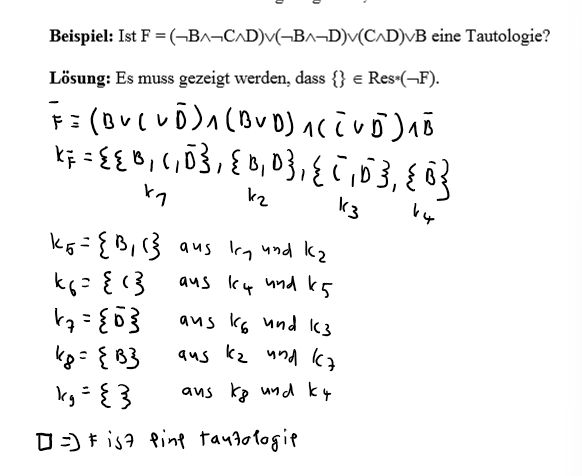 Beispiel: Ist F = (¬B∧¬C∧D)∨(¬B∧¬D)∨(C∧D)∨B eine Tautologie?
Lösung: Es muss gezeigt werden, dass {} ∈ Res*(¬F).
F̅ ≡ (B ∨ C ∨ D̅) ∧ (B ∨ D) ∧ (C̅ ∨ D̅) ∧ B̅
K_F̅ = {{B, C, D̅}, {B, D}, {C̅, D̅}, {B̅}
K1 K2 K3 K4
K5 = {B, C} aus K1 und K2
K6 = {C} aus K4 und K5
K7 = {D̅} aus K6 und K3
K8 = {B} aus K2 und K7
K9 = { } aus K8 und K4
□ ⇒ F ist eine tautologie